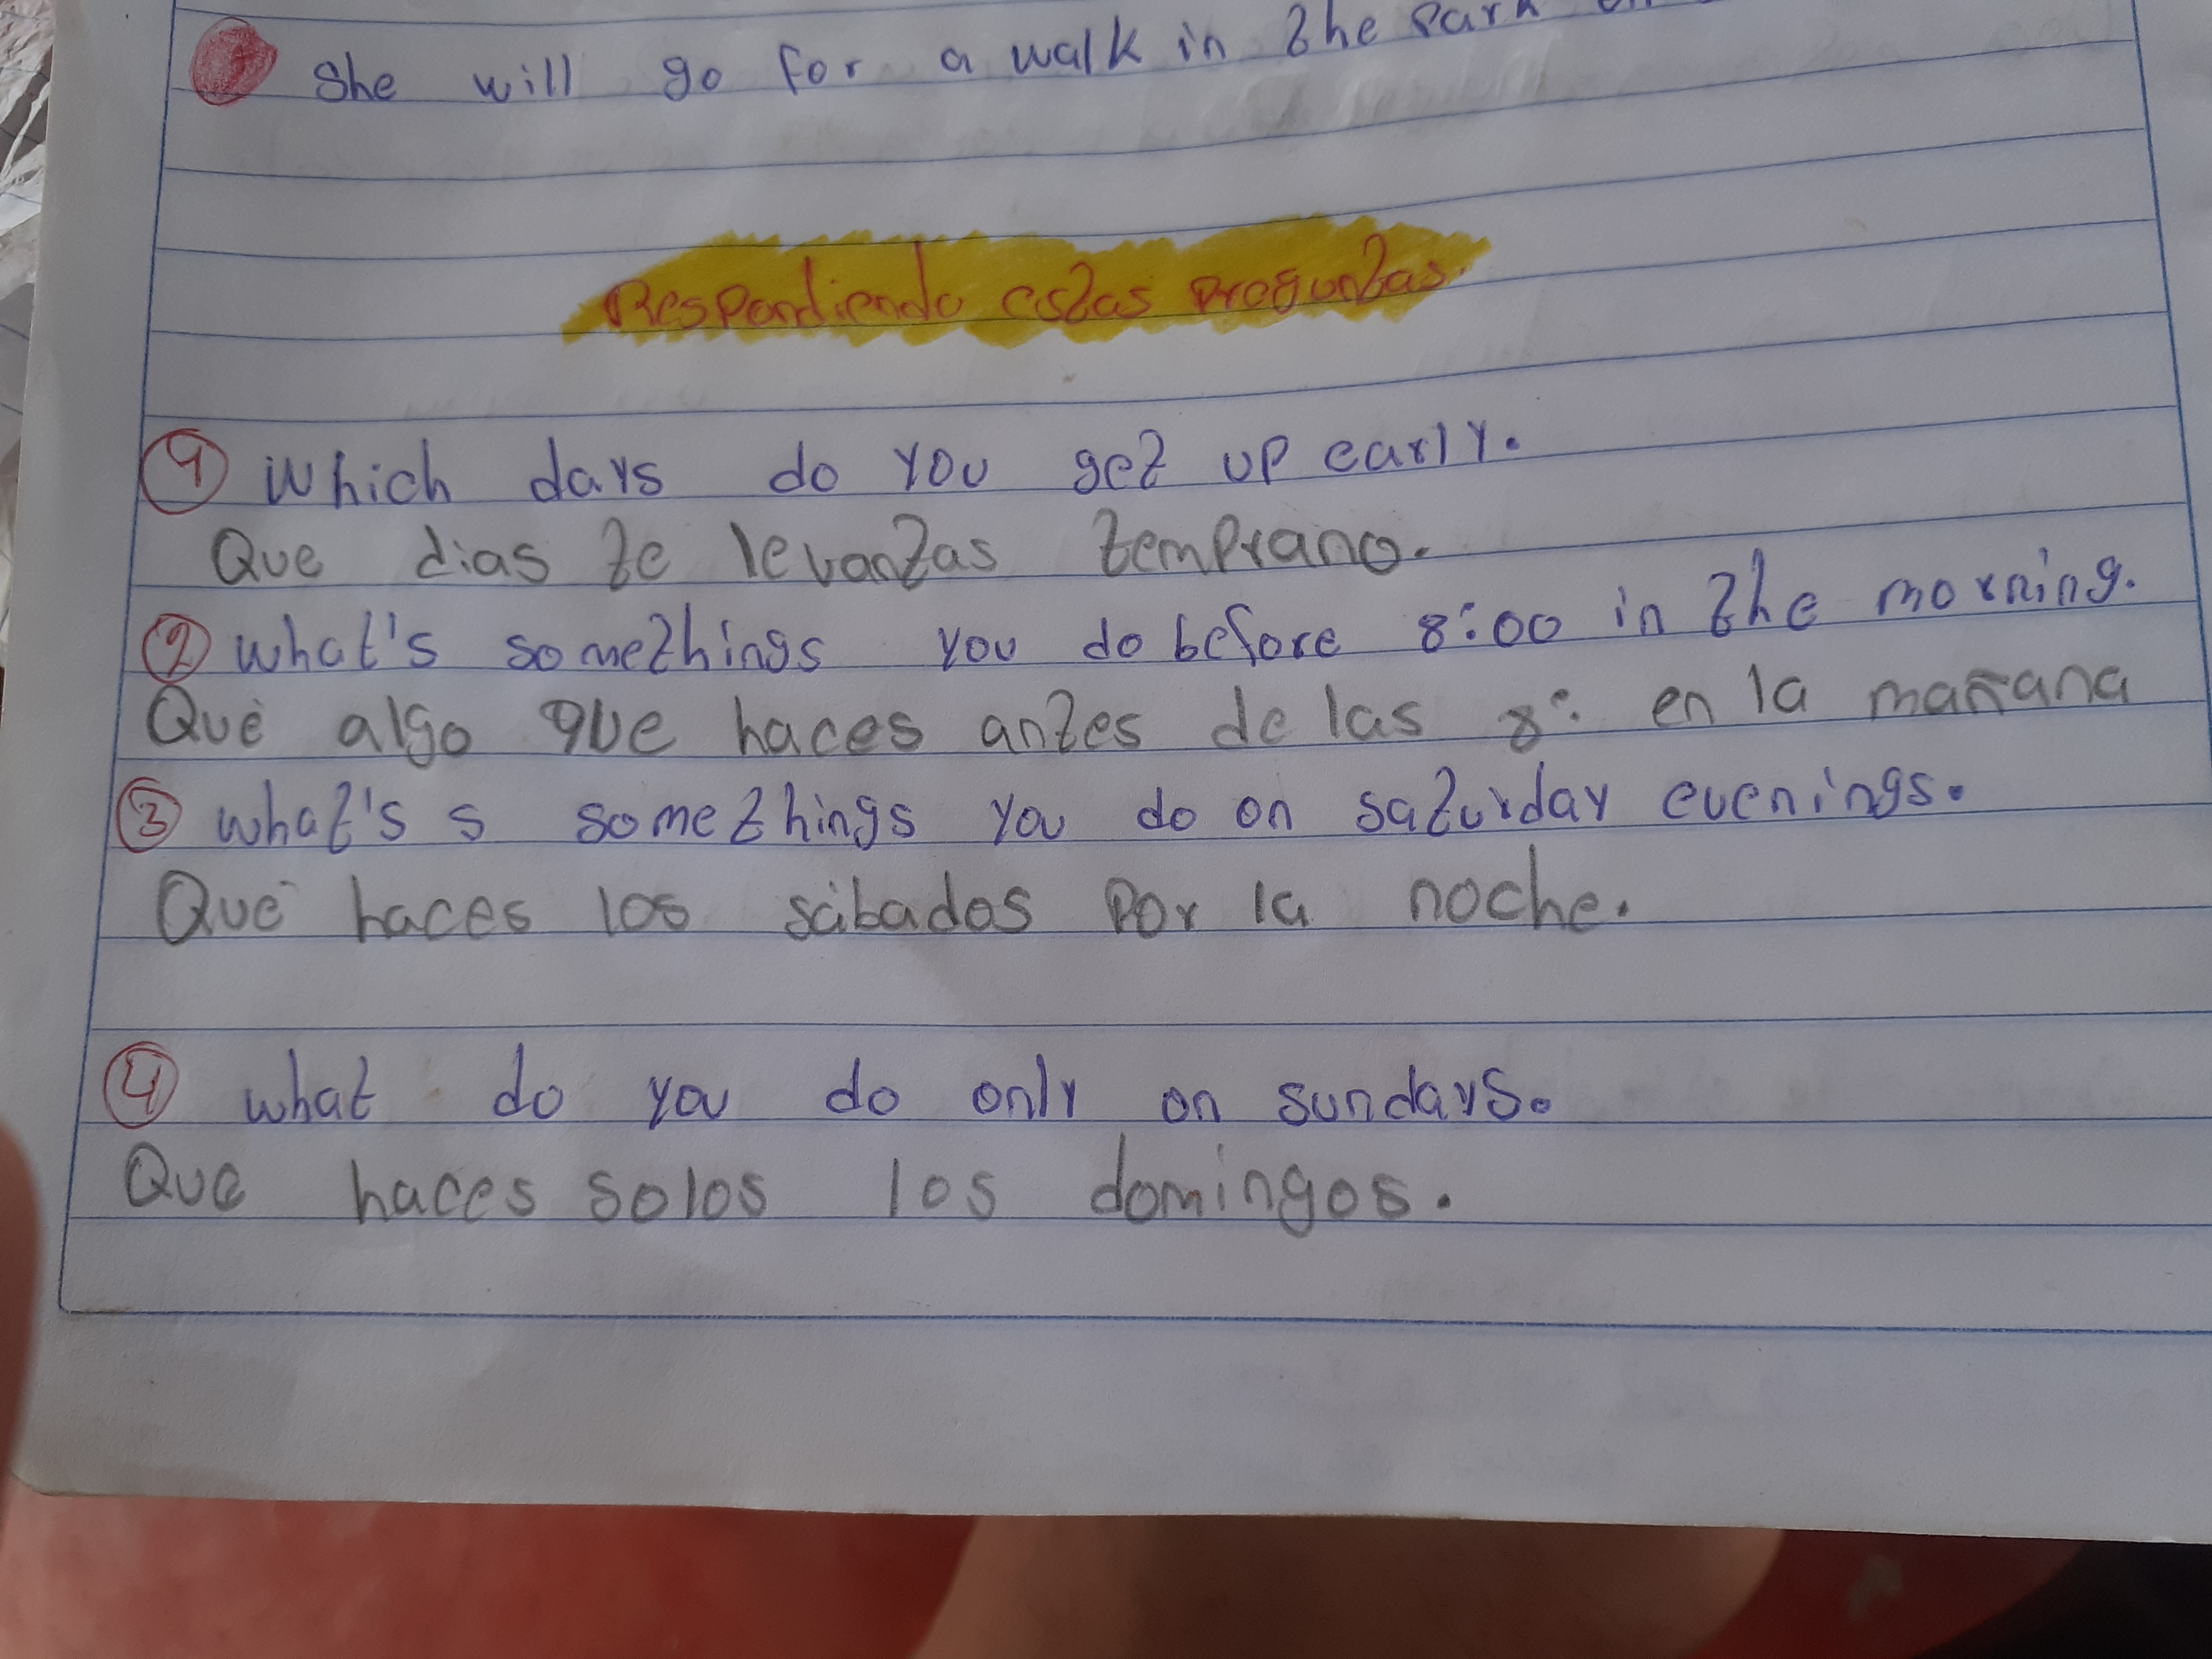 She will go for a walk in the Park
Respondiendo estas preguntas.
1 Which days do you get up early.
Que dias te levantas temprano.
2 what's somethings you do before 8:00 in the morning.
Qué algo que haces antes de las 8: en la mañana
3 what's s somethings you do on saturday evenings.
Qué haces los sábados por la noche.
4 what do you do only on sundays.
Que haces solos los domingos.